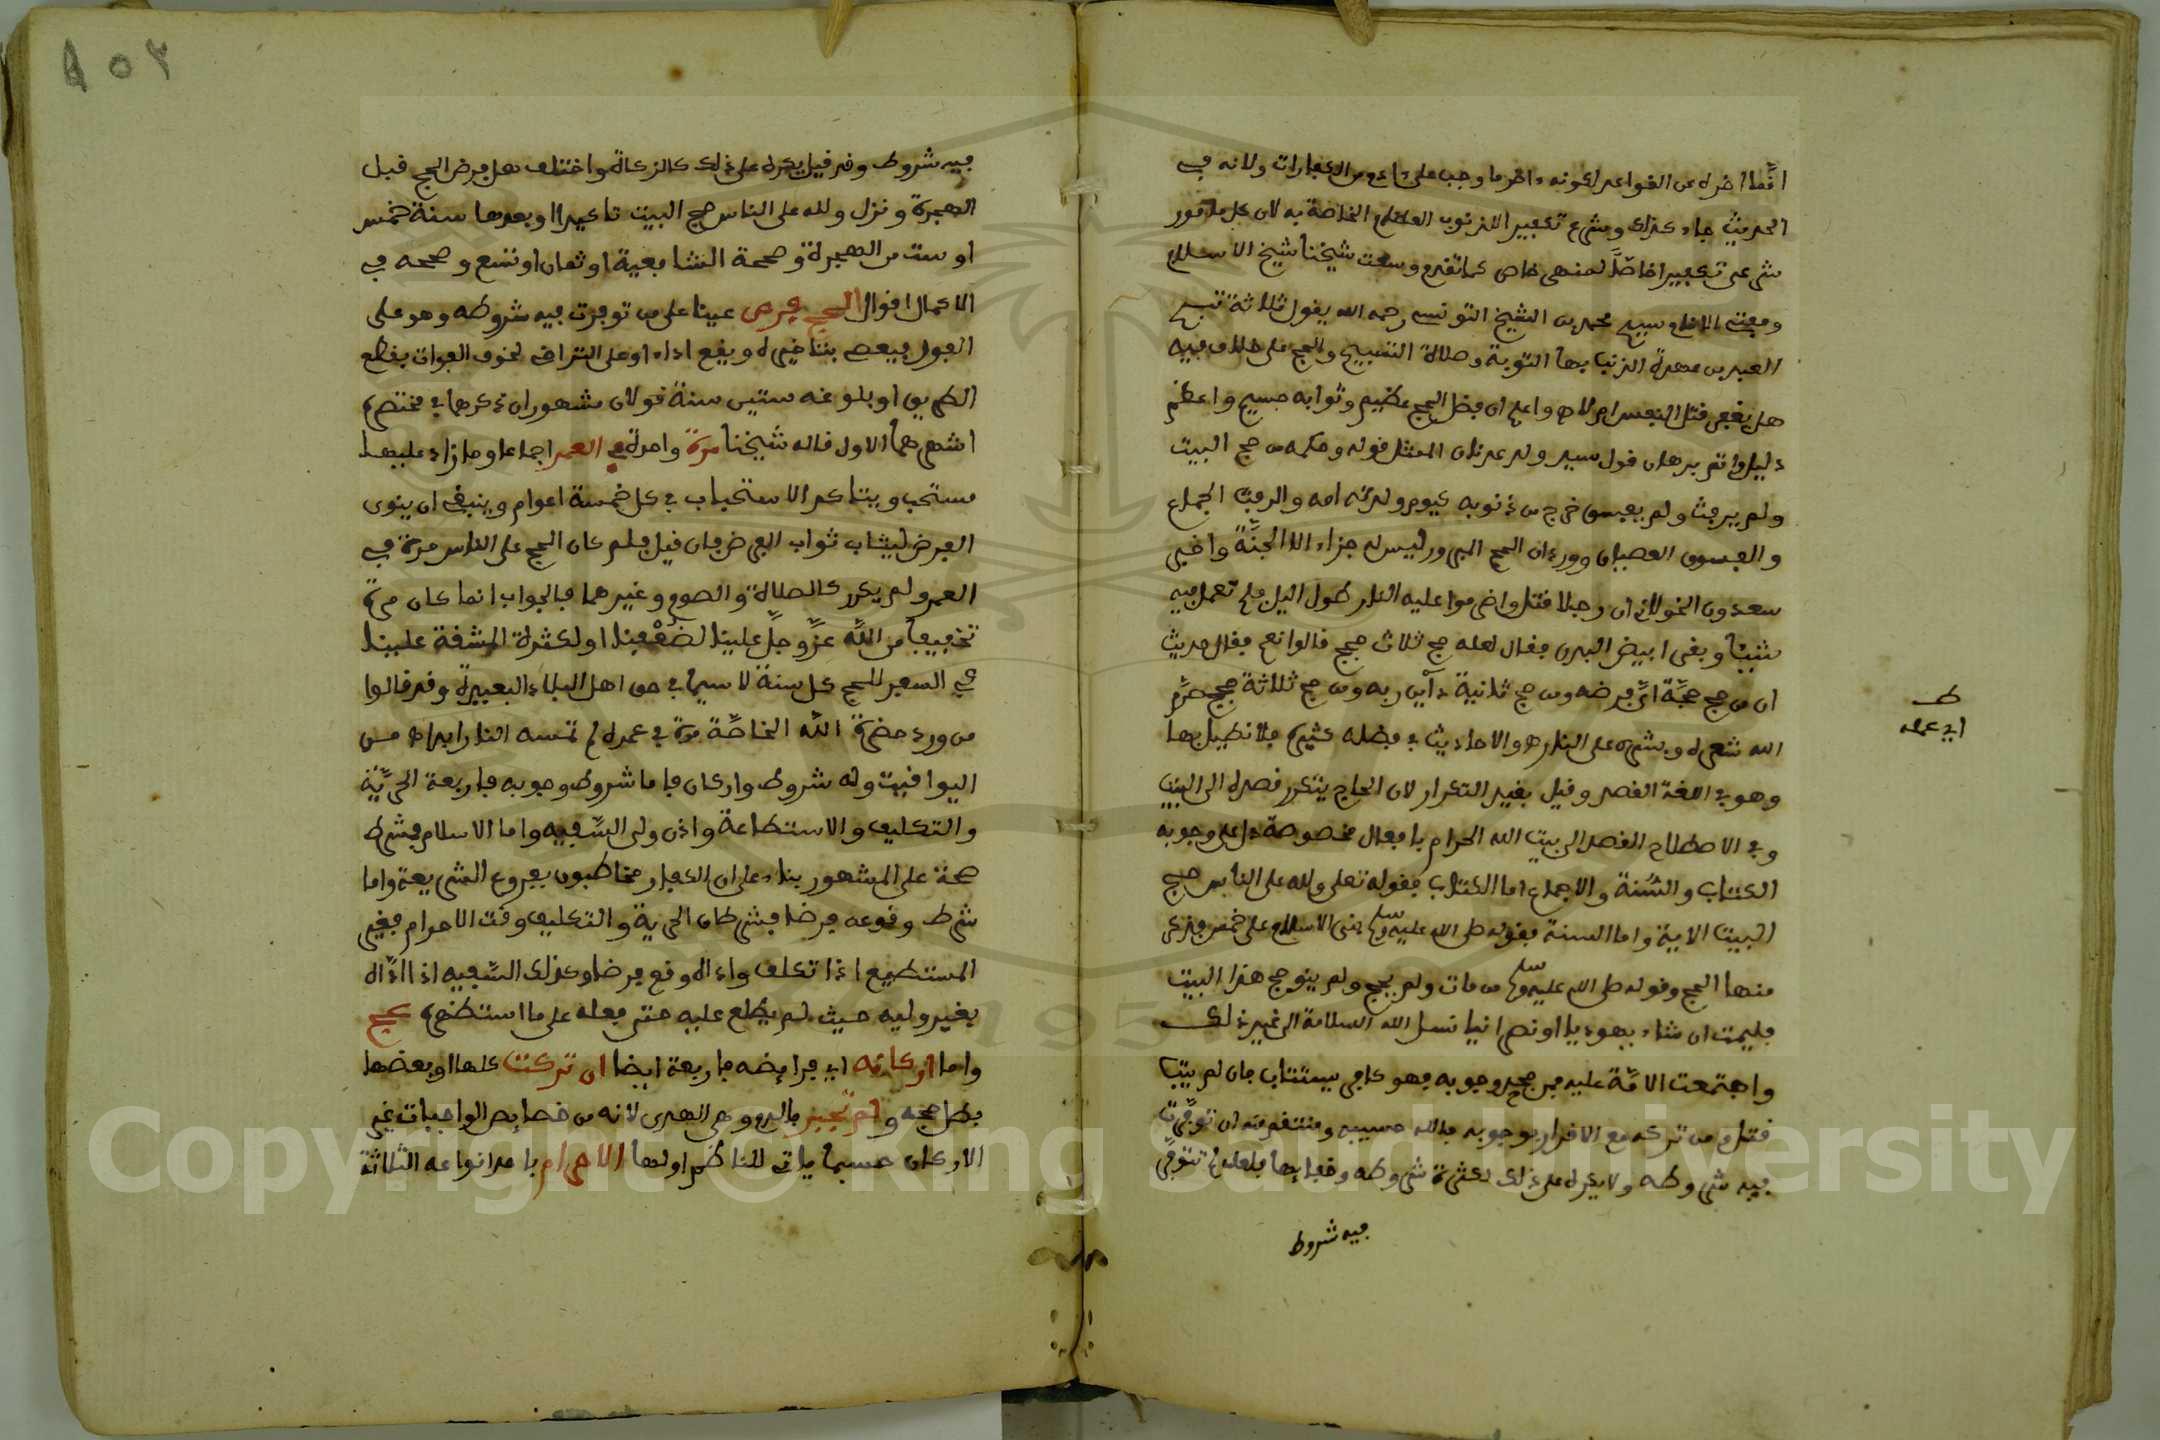 انما اخره عن القواعد لكونه اخر ما وجب على من الكفارات ولانه في
الحديث جاء كذلك وشرع تكفير الذنوب العظام الخاصة به لان كل مامور
شرعي تكفيرا خاصا لمنهي خاص كما تقدم وسمعت شيخنا شيخ الاسلام
ومفتي الانام سيدي محمد بن الشيخ التونسي رحمه الله يقول ثلاثة تبرئ
العبد من عهدة الذنب بها التوبة وصلاة التسبيح والحج على خلاف فيه
هل يغفر قتل النفس ام لا ه واعلم ان فضل الحج عظيم وثوابه جسيم واعظم
دليل واتم برهان قول سيد ولد عدنان الممتثل قوله وحكمه من حج البيت
ولم يرفث ولم يفسق خرج من ذنوبه كيوم ولدته امه والرفث الجماع
والفسوق العصيان وورد ان الحج المبرور ليس له جزاء الا الجنة واخبر
سعدون الخولاني ان رجلا قتل واضرموا عليه النار طول الليل فلم تعمل فيه
شيئا وبقى ابيض البدن فقال لعله حج ثلاث حجج قالوا نعم فقال حديث
ان من حج حجة ادى فرضه ومن حج ثانية داين ربه ومن حج ثلاثة حجج حرم
الله شعره وبشره على النار ه والاحاديث في فضله كثيرة فلا نطيل بها
وهو في اللغة القصد وقيل بقيد التكرار لان الحاج يتكرر قصده الى البيت
وفي الاصطلاح القصد الى بيت الله الحرام بافعال مخصوصة دل على وجوبه
الكتاب والسنة والاجماع اما الكتاب فقوله تعلى ولله على الناس حج
البيت الاية واما السنة فقوله صلى الله عليه وسلم بني الاسلام على خمس فذكر
منها الحج وقوله صلى الله عليه وسلم من مات ولم يحج ولم ينو حج هذا البيت
فليمت ان شاء يهوديا او نصرانيا نسل الله السلامة الى غير ذلك
واجتمعت الامة عليه فمن جحد وجوبه فهو كافر يستتاب فان لم يتب
قتل ومن تركه مع الاقرار بوجوبه فالله حسيبه ومنتقم منه ان توفرت
فيه شروطه ولا يكره على ذلك لكثرة شروطه وخفائها فلعله لم تتوفر
فيه شروط
ط
اي عمله
١٥٢
فيه شروط وقد قيل يكره على ذلك كالزكاة واختلف هل فرض الحج قبل
الهجرة ونزل ولله على الناس حج البيت تاكيدا او بعدها سنة خمس
او ست من الهجرة وصححه الشافعية او ثمان او تسع وصححه في
الاكمال اقوال الحج فرض عينا على من توفرت فيه شروطه وهو على
الفور فيعصى بتاخيره ويقع اداء او على التراخي لخوف الفوات بقطع
الطريق او بلوغه ستين سنة قولان مشهوران ذكرها في مختصره
اشهرهما الاول قاله شيخنا مرة واحدة في العمر اجماعا وما زاد عليها
مستحب ويتاكد الاستحباب في كل خمسة اعوام وينبغي ان ينوى
الفرض ليثاب ثواب الفرض فان قيل فلم كان الحج على الناس مرة في
العمر ولم يكرر كالصلاة والصوم وغيرهما فالجواب انما كان مرة
تخفيفا من الله عز وجل علينا لضعفنا او لكثرة المشقة علينا
في السفر للحج كل سنة لا سيما في حق اهل البلاد البعيدة وقد قالوا
من ورد حضرة الله الخاصة مرة في عمره لم تمسه النار ابدا ه من
اليواقيت وله شروط واركان فاما شروط وجوبه فاربعة الحرية
والتكليف والاستطاعة واذن ولى السفيه واما الاسلام فشرط
صحة على المشهور بناء على ان الكفار مخاطبون بفروع الشريعة واما
شرط وقوعه فرضا فشرطان الحرية والتكليف وقت الاحرام فغير
المستطيع اذا تكلف واداه وقع فرضا وكذلك السفيه اذا اداه
بغير وليه حيث لم يطلع عليه حتى فعله على ما استظهره عج
واما اركانه اي فرايضه فاربعة ايضا ان تركت كلها او بعضها
بطل حجه و لم تجبر بالدم وهي الهدى لانه من خصايص الواجبات غير
الاركان حسبما ياتي للناظم اولها الاحرام باحد انواعه الثلاثة
Copyright © King Saud University